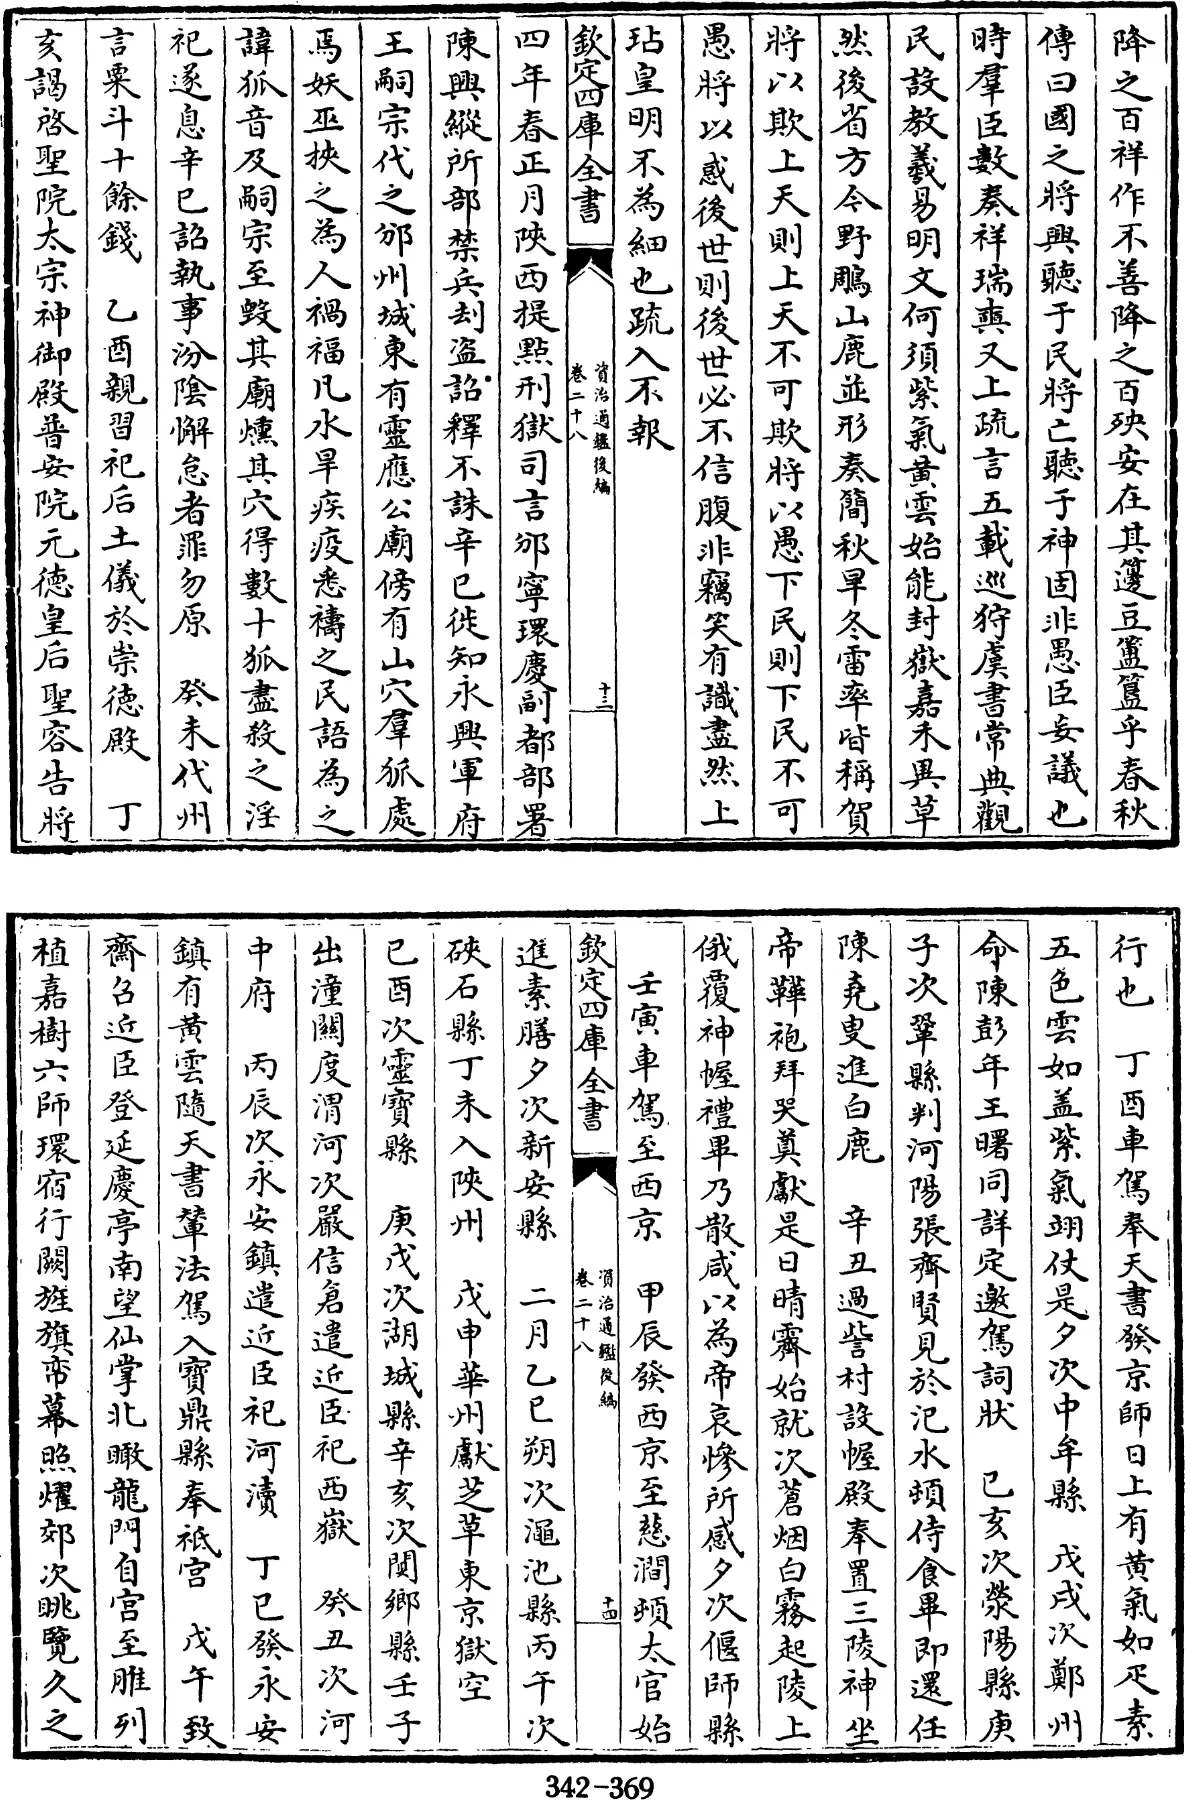 降之百祥作不善降之百殃安在其籩豆簠簋乎春秋
傳曰國之將興聽于民將亡聽于神固非愚臣妄議也
時羣臣數奏祥瑞奭又上疏言五載巡狩虞書常典觀
民設教羲易明文何須紫氣黄雲始能封嶽嘉禾異草
然後省方今野鵰山鹿並形奏簡秋旱冬雷率皆稱賀
將以欺上天則上天不可欺將以愚下民則下民不可
愚將以惑後世則後世必不信腹非竊笑有識盡然上
玷皇明不為細也疏入不報
欽定四庫全書
資治通鑑後編
卷二十八
十三
四年春正月陜西提點刑獄司言邠寧環慶副都部署
陳興縱所部禁兵刦盗詔釋不誅辛巳徙知永興軍府
王嗣宗代之邠州城東有靈應公廟傍有山穴羣狐處
焉妖巫挾之為人禍福凡水旱疾疫悉禱之民語為之
諱狐音及嗣宗至毀其廟燻其穴得數十狐盡殺之淫
祀遂息辛巳詔執事汾隂懈怠者罪勿原　癸未代州
言粟斗十餘錢　乙酉親習祀后土儀於崇德殿　丁
亥謁啓聖院太宗神御殿普安院元德皇后聖容告將
行也　丁酉車駕奉天書發京師日上有黄氣如疋素
五色雲如盖紫氣翊仗是夕次中牟縣　戊戌次鄭州
命陳彭年王曙同詳定邀駕詞狀　己亥次滎陽縣庚
子次鞏縣判河陽張齊賢見於汜水頓侍食畢即還任
陳堯叟進白鹿　辛丑過訾村設幄殿奉置三陵神坐
帝鞾袍拜哭奠獻是日晴霽始就次蒼烟白霧起陵上
俄覆神幄禮畢乃散咸以為帝哀慘所感夕次偃師縣
壬寅車駕至西京　甲辰發西京至慈澗頓太官始
欽定四庫全書
資治通鑑後編
卷二十八
十四
進素膳夕次新安縣　二月乙巳朔次澠池縣丙午次
硤石縣丁未入陜州　戊申華州獻芝草東京獄空
己酉次靈寶縣　庚戌次湖城縣辛亥次閿鄉縣壬子
出潼關度渭河次嚴信倉遣近臣祀西嶽　癸丑次河
中府　丙辰次永安鎮遣近臣祀河瀆　丁巳發永安
鎮有黄雲隨天書輦法駕入寶鼎縣奉祗宫　戊午致
齋召近臣登延慶亭南望仙掌北瞰龍門自宫至脽列
植嘉樹六師環宿行闕旌旗帟幕照燿郊次眺覽久之
342-369